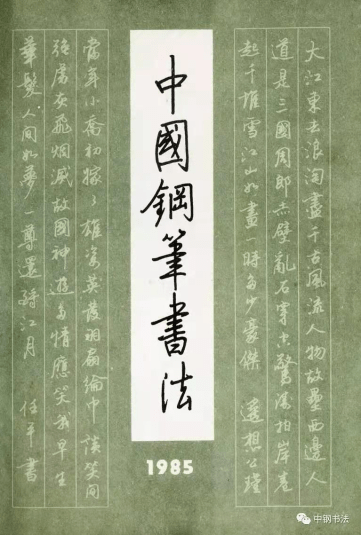 大江東去浪淘盡千古風流人物故壘西邊人
道是三國周郎赤壁亂石穿空驚濤拍岸卷
起千堆雪江山如畫一時多少豪傑 遙想公瑾
中國鋼筆書法
1985
當年小喬初嫁了雄姿英發羽扇綸巾談笑間
強虜灰飛煙滅故國神遊多情應笑我早生
華髮人間如夢一尊還酹江月 任平書
中钢书法